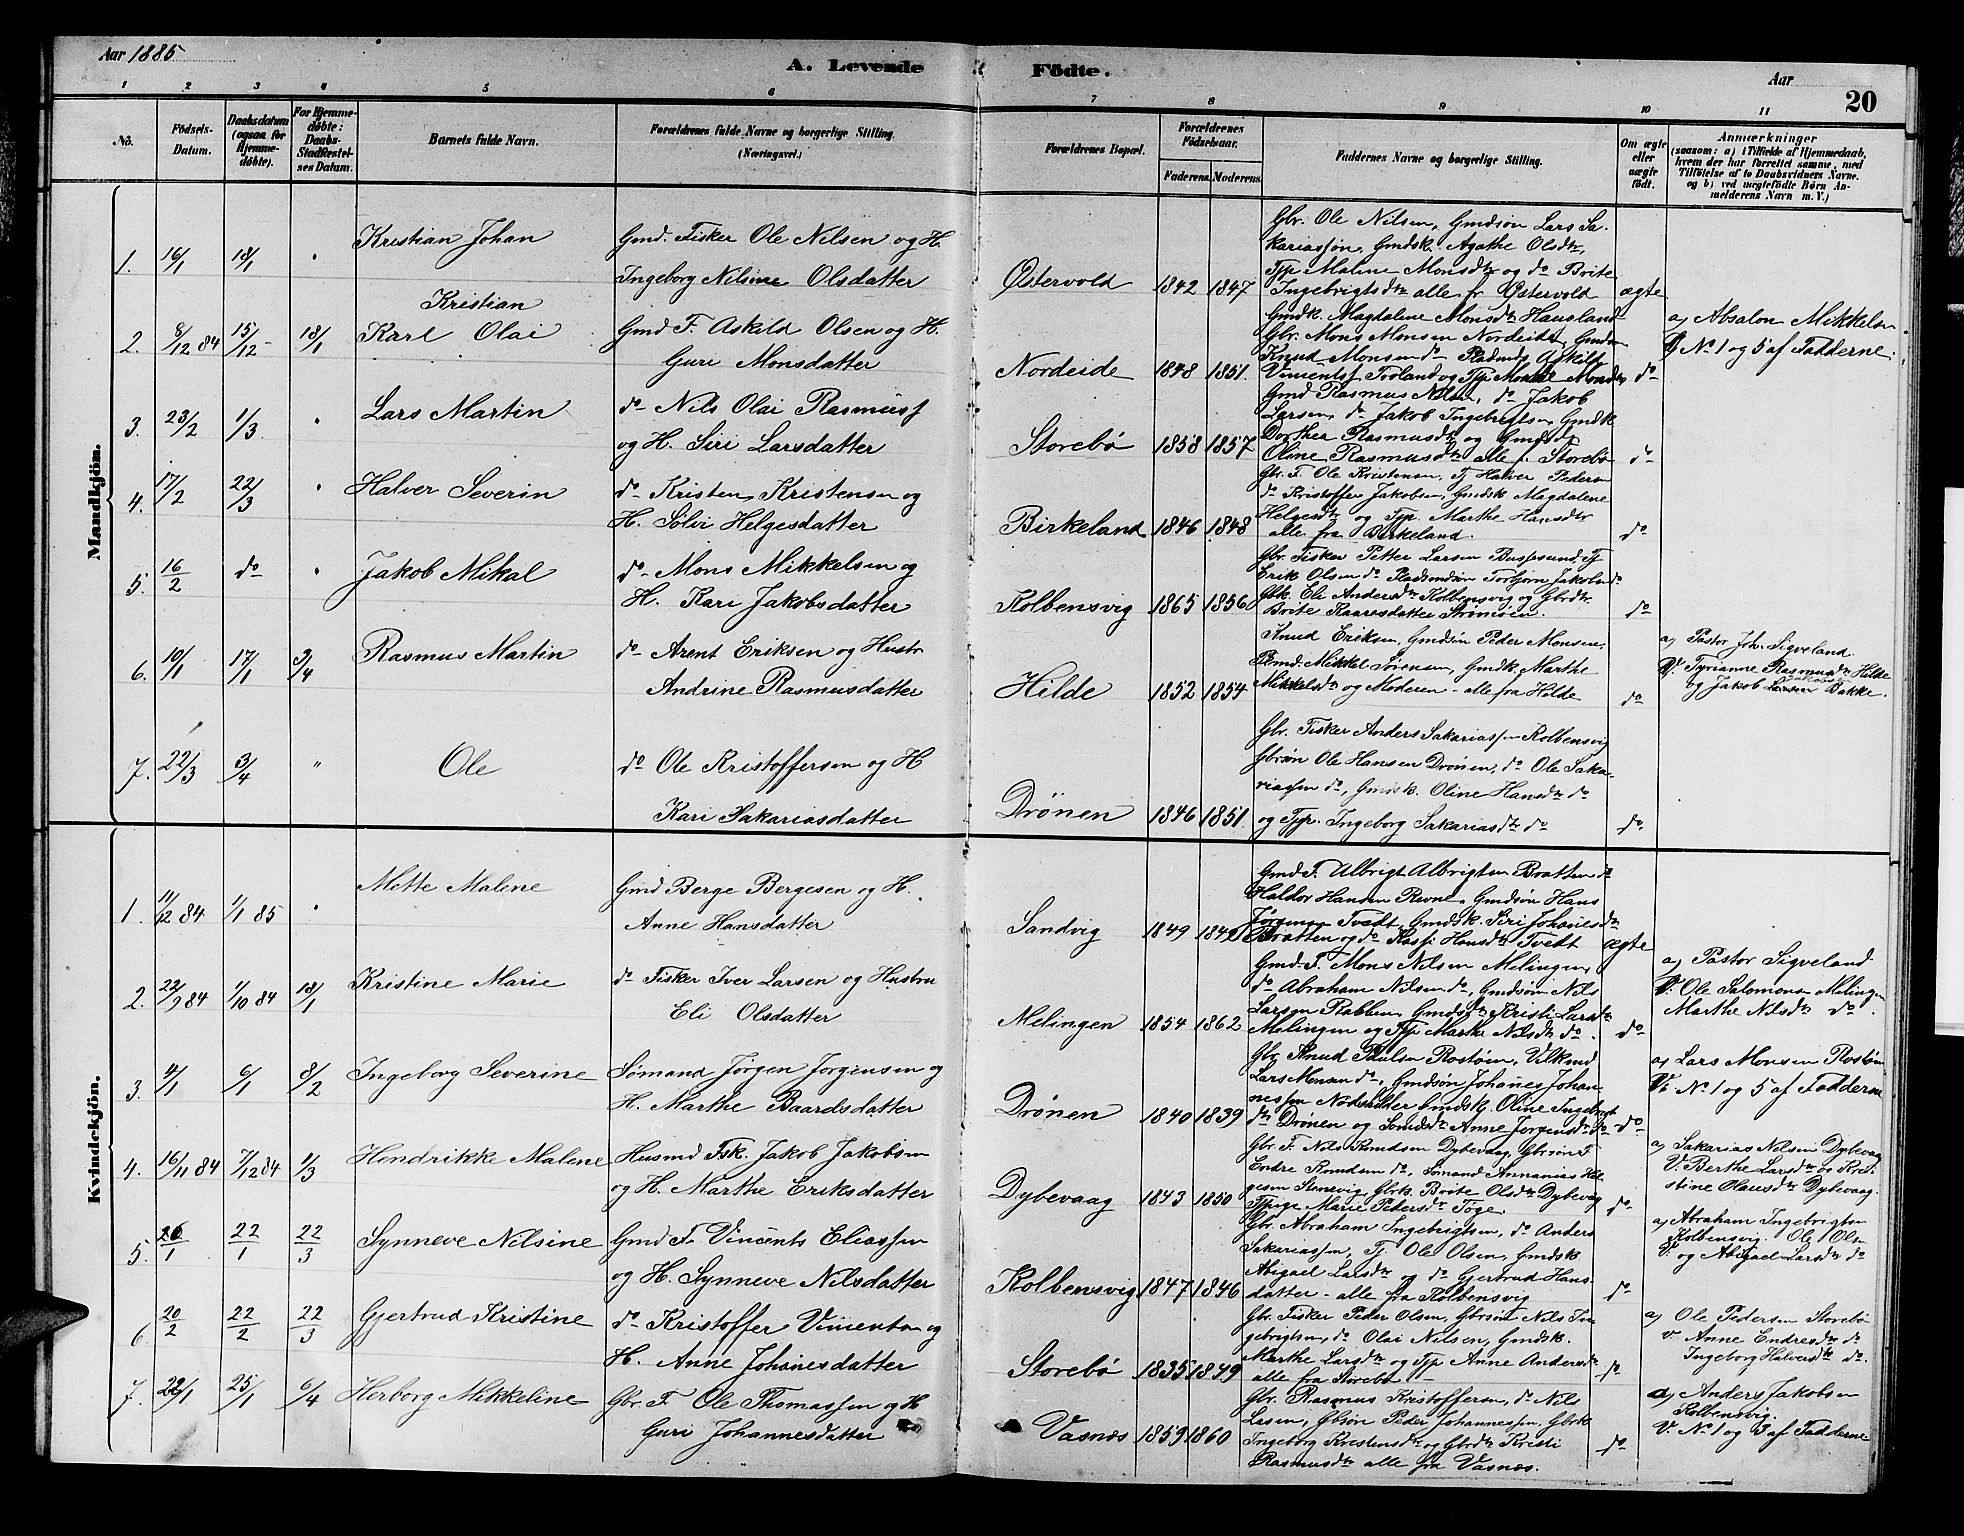 Aar 1885
A. Levende Födte.
Aar
20
1 2 3 4 5 6 7 8 9 10 11
No.
Födsels-Datum.
Daabsdatum (ogsaa for Hjemme-döbte).
For Hjemme-döbte: Daabs-Stadfæstel-ses Datum.
Barnets fulde Navn.
Forældrenes fulde Navne og borgerlige Stilling. (Næringsvei.)
Forældrenes Bopæl.
Forældrenes Födselsaar.
Faderens. Moderens.
Faddernes Navne og borgerlige Stilling.
Om ægte eller uægte födt.
Anmærkninger
(saasom: a) i Tilfælde af Hjemmedaab, hvem der har forrettet samme, med Tilföielse af to Daabsvidners Navne. og b) ved uægtefödte Börn An-melderens Navn m. V.)
Mandkjön.
1. 16/1 18/1 "
Kristian Johan
Gmd. Fisker Ole Nilsen og H.
Ingeborg Nilsine Olsdatter
Østervold 1842 1847
Gbr. Ole Nilsen, Gmdsön Lars Sa-
kariassøn, Gmdsk. Agathe Olsdtr,
Tjp Maline Monsdtr og do Brite
Ingebrigtsdtr alle fr Østervold
ægte
2. 8/12 84 15/12 18/1
Kristian
Karl Olai
Gmd F. Askild Olsen og H.
Guri Monsdatter
Nordeide 1848 1851.
Gmdk. Magdalene Monsdtr Hausland
Gbr. Mons Monsen Nordeide, Gmdsøn
Knud Monsen do
do
a) Absalon Mikkelsen
V. No 1 og 5 af Fadderne.
3. 23/2 1/3 "
Lars Martin
do Nils Olai Rasmuss
og H. Siri Larsdatter
Storebø 1858 1857
Gmd Rasmus Nilsen, do Jakob
Larsen, do Jakob Ingebrigtsen, Gmdk
Dorthea Rasmusdtr og Gmdsk
Oline Rasmusdtr alle f. Storebø
do
4. 17/2 22/3 "
Halver Severin
do Kristen Kristensen og
H. Sølvi Helgesdatter
Birkeland 1846 1848
Gbr. F. Ole Kristensen, Tj Halver Pedersen
do Kristoffer Jakobsen, Gmdsk Magdalene
Helgesdtr og Tjp. Marthe Hansdtr
alle fra Birkeland.
do
5. 16/2 do "
Jakob Mikal
do Mons Mikkelsen og
H. Kari Jakobsdatter
Kolbensvig 1865 1856
Gbr. Fisker Petter Larsen Bussesund, Tj
Erik Olsen do Pladsmdsön Torbjørn Jakobsen do
Gbk. Eli Andersdtr Kolbensvig og Gbrdtr.
Brite Kaaresdatter Strømsen.
do
6. 10/1 17/1 3/4
Rasmus Martin
do Arent Eriksen og Hustr
Andrine Rasmusdatter
Hilde 1852 1854
Knud Eriksen, Gmdsön Peder Monsen,
Mikkel Sørensen, Gmdk. Marthe
Mikkelsdtr og Moderen - alle fra Hilde
do
a) Pastor Joh. Sigveland
V. Tyrianne Rasmusdtr Hilde
og Jakob Larsen Bakke.
7. 22/3 3/4 "
Ole
do Ole Kristoffersen og H
Kari Sakariasdatter
Drönen 1846 1851.
Gbr. Fisker Anders Sakariassen Kolbensvig
Gbrsøn Ole Hansen Drönen, do Ole Saka-
riassen do, Gmdsk. Oline Hansdtr do
og Tjp. Ingeborg Sakariasdtr do
do
Kvindekjön.
1. 11/12 84 1/1 85 "
Mette Malene
Gmd Berge Bergesen og H.
Anne Hansdatter
Sandvig 1849 1842
Gmd F. Albrigt Albrigtsen Bratten do
Haldor Hansen Revne, Gmdsön Hans
Jörgensen Tvedt, Gmdsk. Siri Johanesdtr
Bratten og do Hansdtr Tvedt
ægte
2. 22/9 84 1/10 84 18/1
Kristine Marie
do Fisker Iver Larsen og Hustru
Eli Olsdatter
Melingen 1854 1862
Gmd F. Mons Nilsen Melingen,
do Abraham Nilsen do, Gmdsön Nils
Larsen Rabben, Gmdsk Kristi Larsdtr
Melingen og Tjp Marthe Nilsdtr do.
do
a) Pastor Sigveland
V. Ole Salomonsen Melingen
Marthe Nilsdtr do.
3. 4/1 6/1 8/2
Ingeborg Severine
Sømand Jørgen Jørgensen og
H. Marthe Baardsdatter
Drönen 1840 1839
Gbr Knud Paulsen Rostøen,
Lars Monsen do, Gmdsön Johanes Johan-
nessen Gmdsk. Oline Ingebrigt
dtr Drönen og Anne Jørgensdtr do
do
a) Lars Monsen Rostøen
V. No 1 og 5 af Fadderne
4. 16/11 84 7/12 84 1/3
Hendrikke Malene
Husmd Fsk. Jakob Jakobsen
og H. Marthe Eriksdatter
Dybevaag 1843 1850
Gbr. F. Nils Knudsen Dybevaag, Gbrsön F
Endre Knudsen do, Sømand Annanias Hel-
gesen Stenevig Gbrk. Brite Olsdtr Dybevag
Tjpige Marie Pedersdtr Toge.
do
a) Sakarias Nilsen Dybevaag
V. Berthe Larsdtr og Kri-
stine Olausdtr Dybevaag.
5. 26/1 22/1 22/3
Synneve Nilsine
Gmd F. Vincents Eliassen
og H. Synneve Nilsdatter
Kolbensvig 1847 1846
Gbr. Abraham Ingebrigtsen, do Anders
Sakariassen, Tj Ole Olsen, Gmdsk
Abigael Larsdtr og do Gjertrud Hans-
datter - alle fra Kolbensvig
do
a) Abraham Ingebrigtsen
Kolbensvig. Ole Olsen
V. og Abigael Larsdtr do
6. 20/2 22/2 22/3
Gjertrud Kristine
do Kristoffer Vincentsen og
H. Anne Johanesdatter
Storebø 1835 1849
Gbr. Fisker Peder Olsen, Gbrsön Nils In-
gebrigtsen, do Olai Nilsen, Gmdsk.
Marthe Larsdtr og Tjp Anne Andersdtr
alle fra Storebø
do
a) Ole Pedersen Storebø
V Anne Endresdtr do
Ingeborg Halversdtr do.
7. 22/1 25/1 6/4
Herborg Mikkeline
Gbr. F. Ole Thomassen og H
Guri Johannesdatter
Vasnæs 1859 1860
Gbr. Rasmus Kristoffersen, do Nils
Lasen, Gbsön Peder Johannessen, Gbrk
Ingeborg Kristensdtr og Gbrdtr Kristi
Rasmusdtr alle fra Vasnæs.
do
a) Anders Jakobsen
Kolbensvig.
V. No 1 og 3 af Fadderne